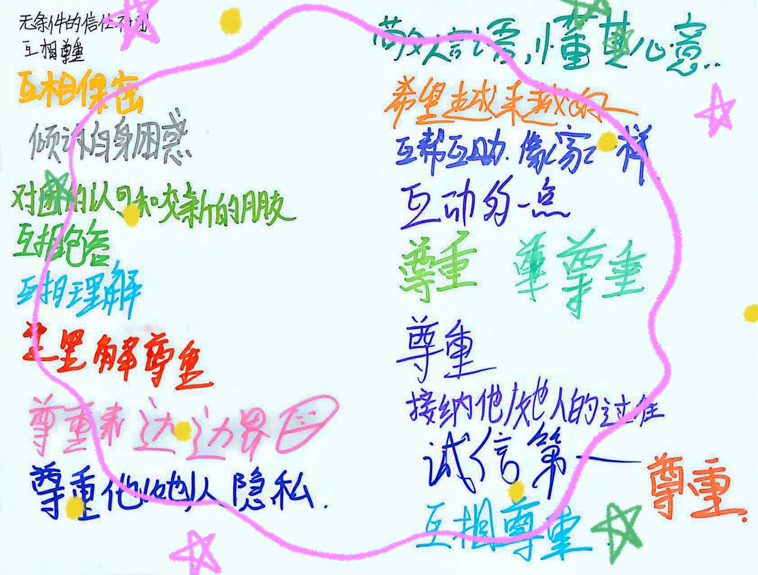 无条件的信任
互相尊重
互相保密
倾诉自身困惑
对团的认可和交新的朋友
互相包容
互相理解
理解尊重
尊重表达边界
尊重他/她人隐私.
敬人言语,懂其心意..
希望越来越
互帮互助.像家一样
互动多一点
尊重 尊重
尊重
接纳他/她人的过往
诚信第一
尊重.
互相尊重